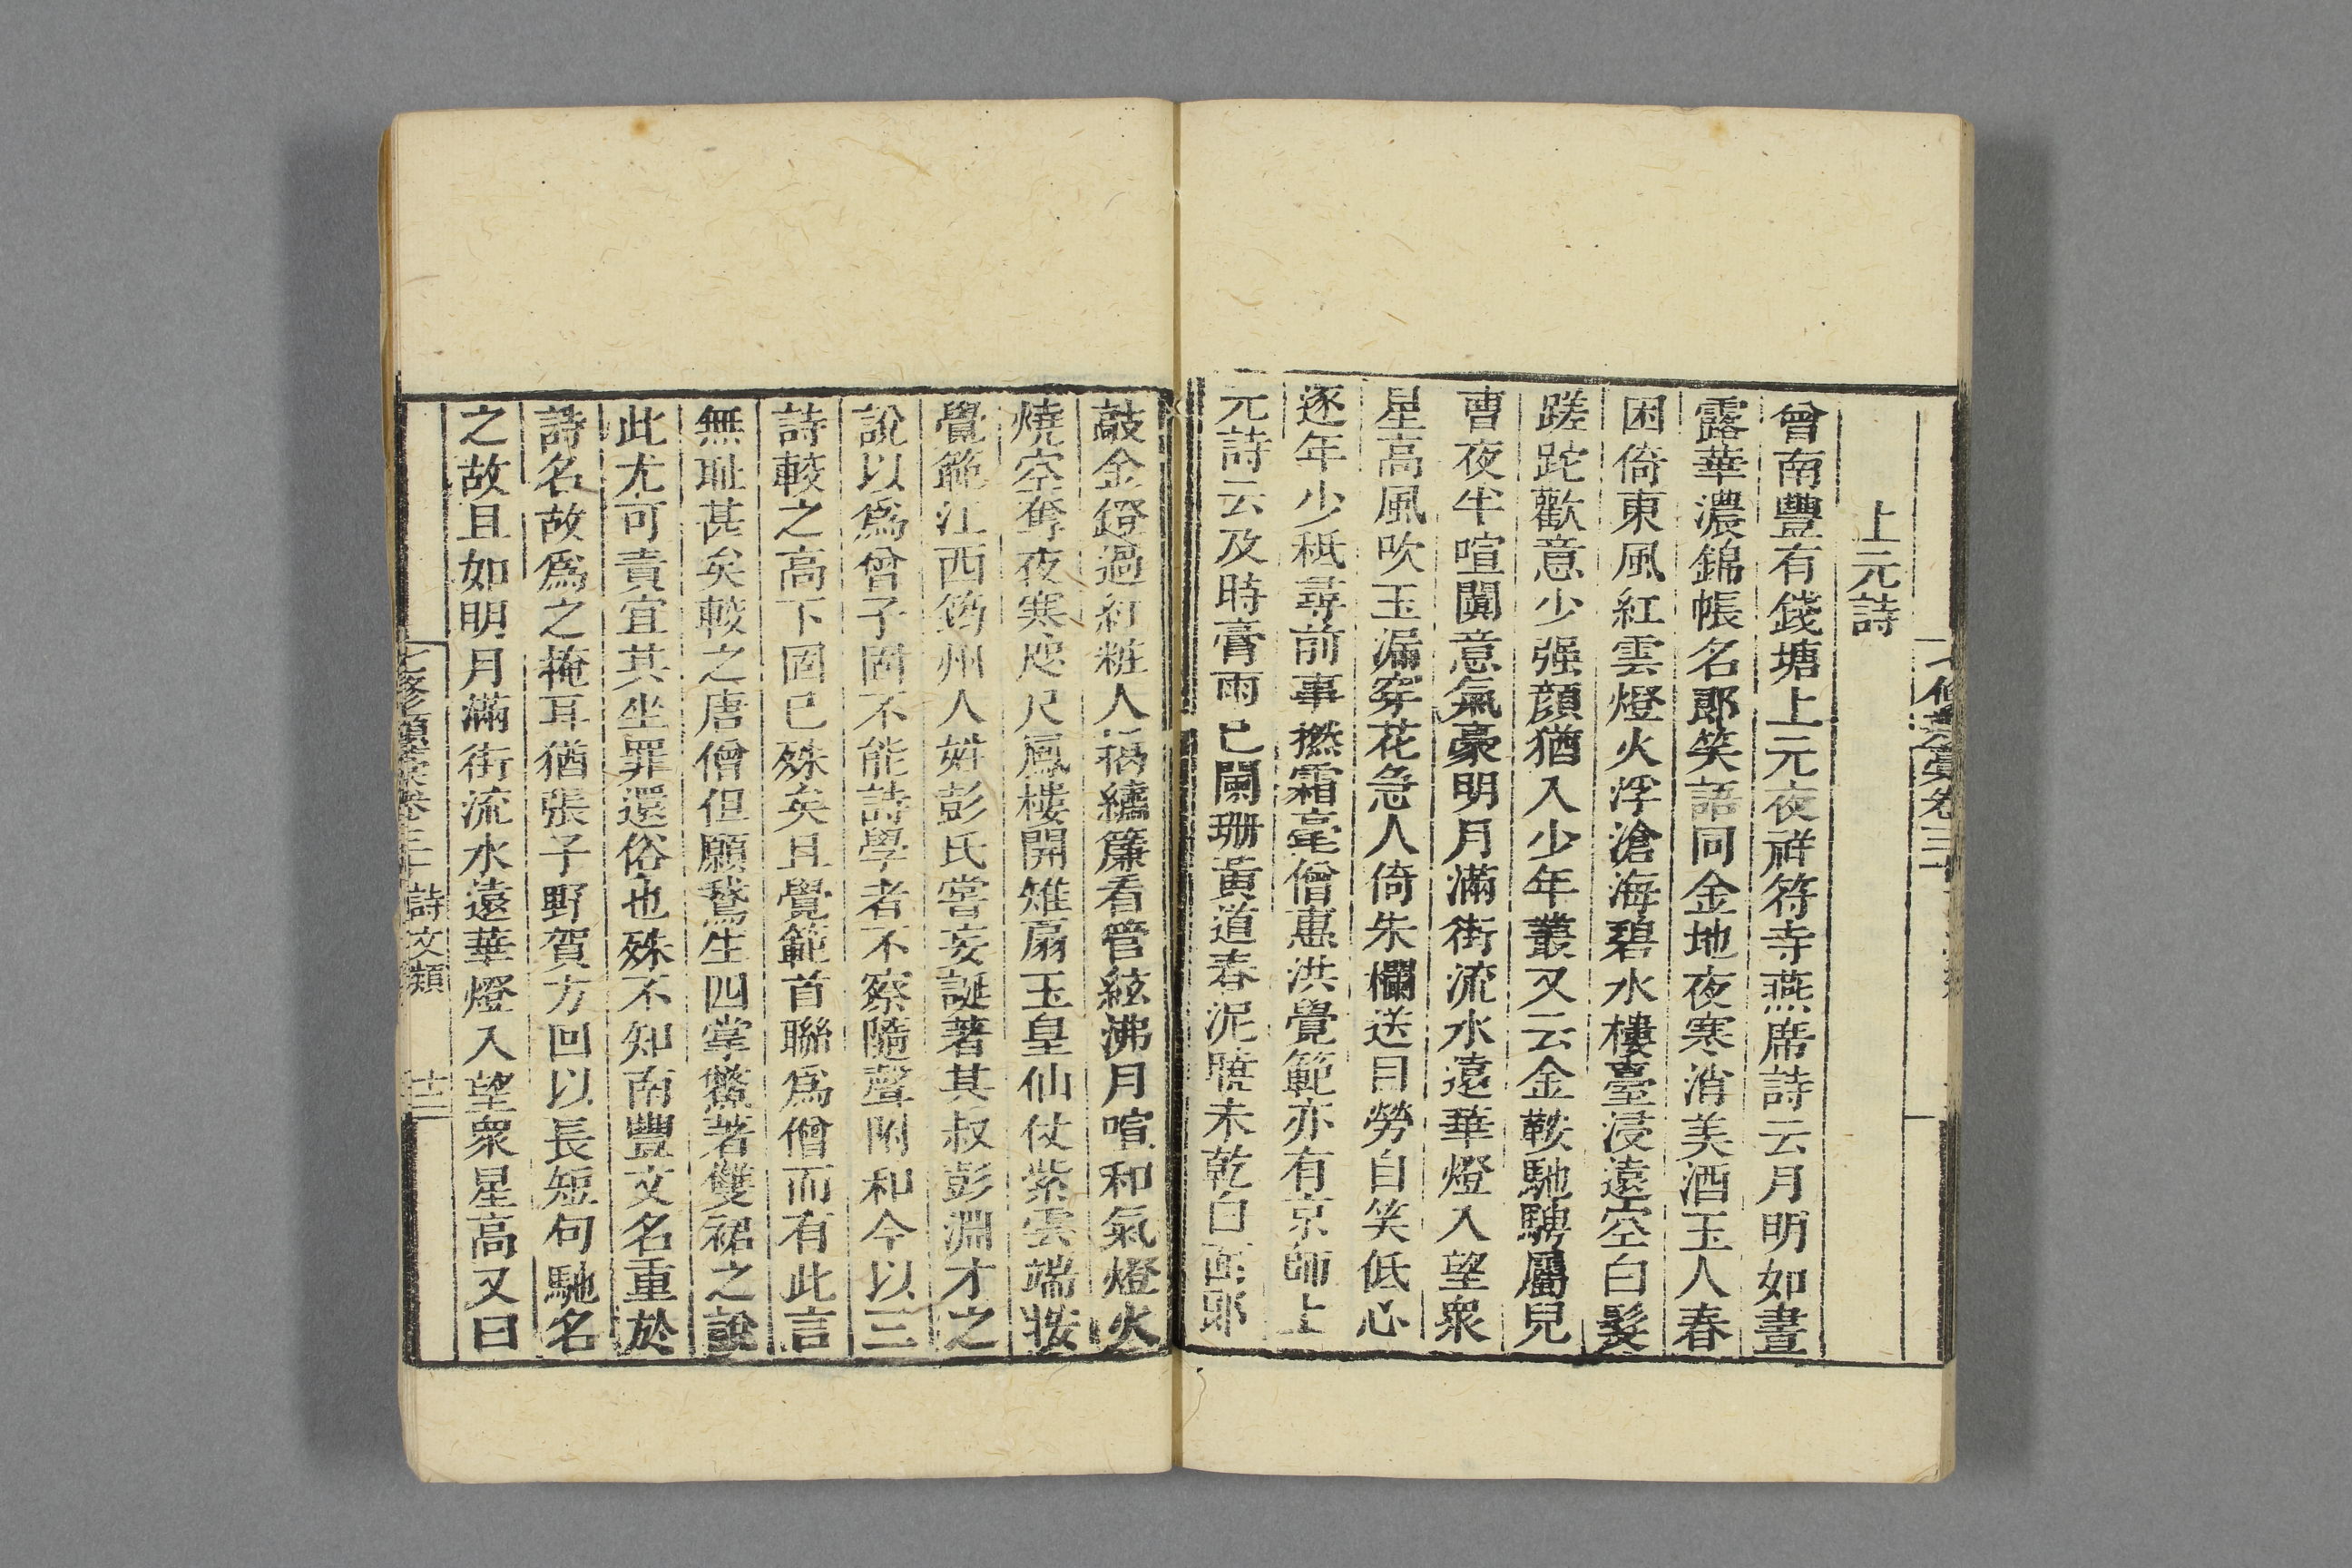 上元詩
曾南豐有錢塘上元夜祥符寺燕席詩云月明如晝
露華濃錦帳名郎笑語同金地夜寒消美酒玉人春
困倚東風紅雲燈火浮滄海碧水樓臺浸遠空白髮
蹉跎歡意少强顏猶入少年叢又云金鞍馳騁屬兒
曹夜半喧闐意氣豪明月滿街流水遠華燈入望衆
星高風吹玉漏穿花急人倚朱欄送目勞自笑低心
逐年少秪尋前事撚霜毫僧惠洪覺範亦有京師上
元詩云及時膏雨已闌珊黃道春泥曉未乾白面郎
敲金鐙過紅粧人揭繡簾看管絃沸月喧和氣燈火
燒空奪夜寒咫尺鳳樓開雉扇玉皇仙仗紫雲端按
覺範江西筠州人姓彭氏嘗妄誕著其叔彭淵才之
說以爲曾子固不能詩學者不察隨聲附和今以三
詩較之高下固已殊矣且覺範首聯爲僧而有此言
無耻甚矣較之唐僧但願鵞生四掌鱉著雙裙之說
此尤可責宜其坐罪還俗也殊不知南豐文名重於
詩名故爲之掩耳猶張子野賀方回以長短句馳名
之故且如明月滿街流水遠華燈入望衆星高又曰
七修類藁卷三十 詩文類 十二